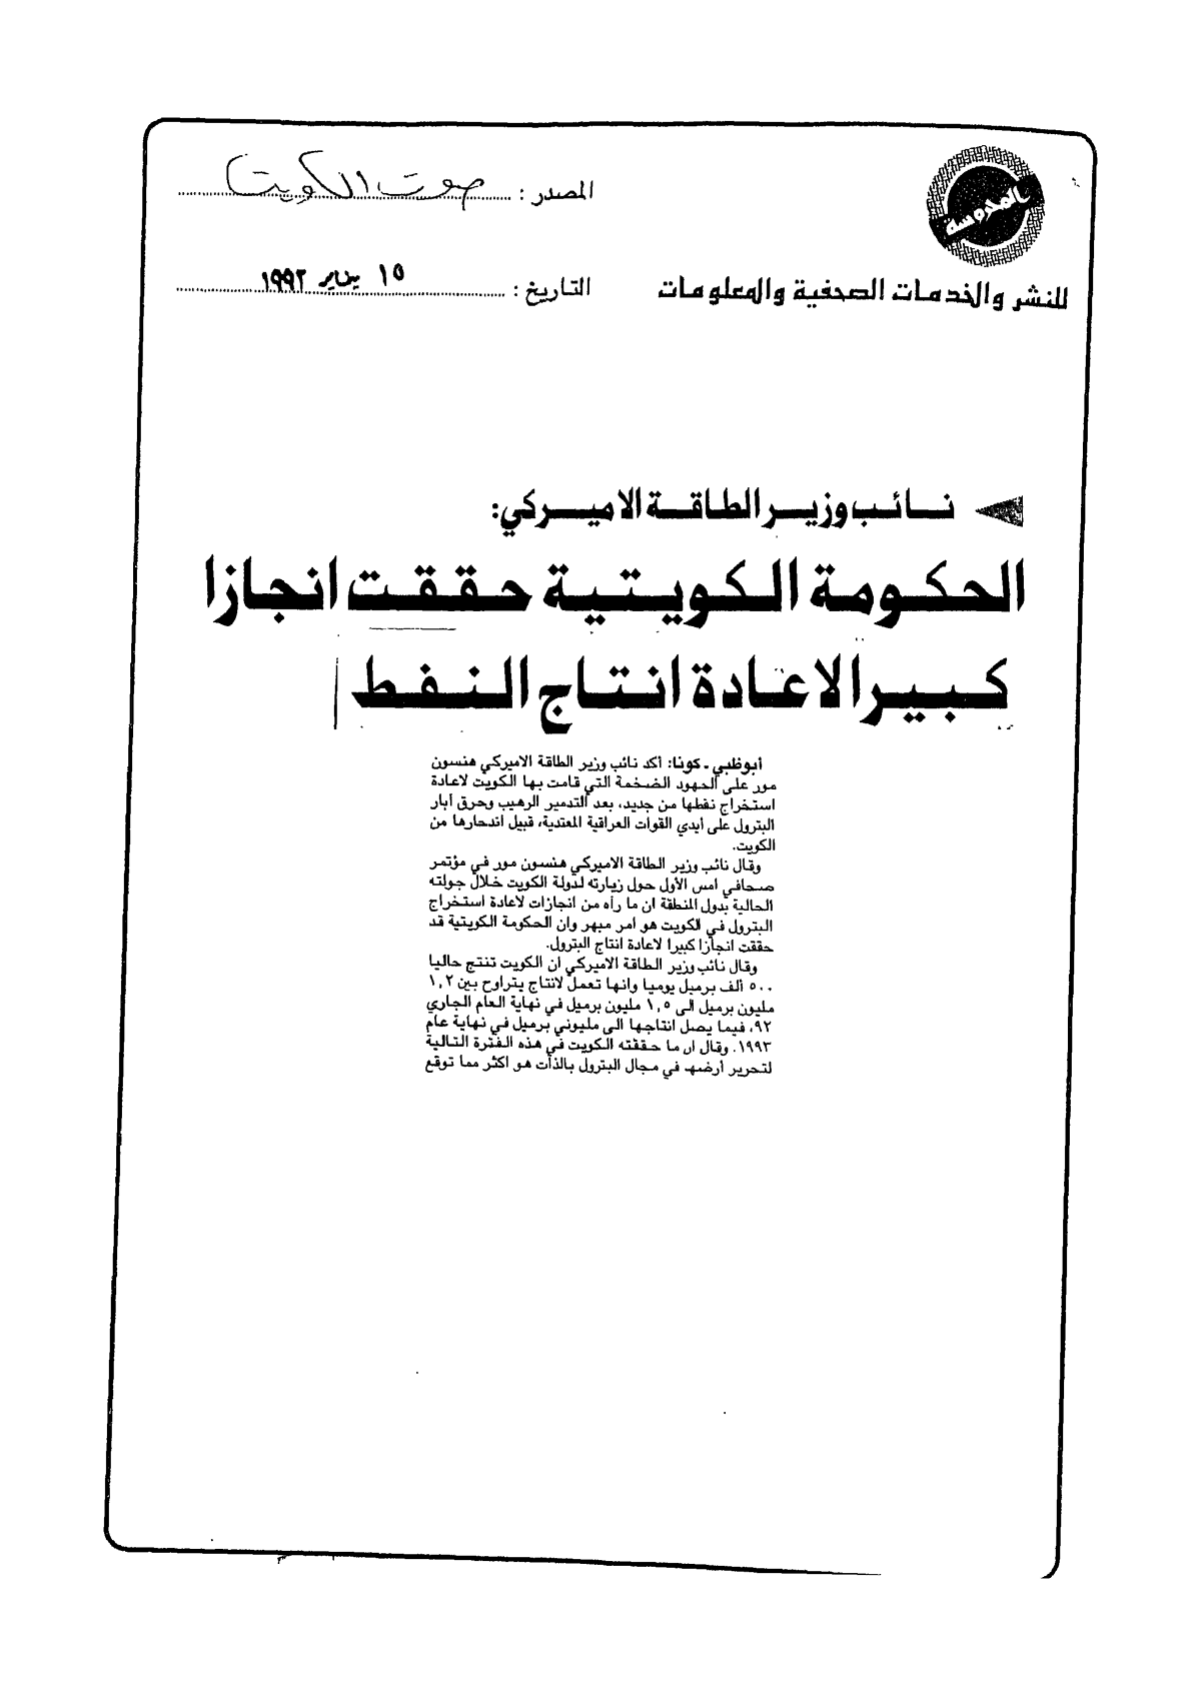 المدروسة
المصدر : صوت الكويت
للنشر والخدمات الصحفية والمعلومات
التاريخ : ١٥ يناير ١٩٩٢
نائب وزير الطاقة الاميركي:
الحكومة الكويتية حققت انجازا
كبيرا لاعادة انتاج النفط
أبوظبي ـ كونا: أكد نائب وزير الطاقة الاميركي هنسون
مور على الجهود الضخمة التي قامت بها الكويت لاعادة
استخراج نفطها من جديد، بعد التدمير الرهيب وحرق آبار
البترول على أيدي القوات العراقية المعتدية، قبيل اندحارها من
الكويت.
وقال نائب وزير الطاقة الاميركي هنسون مور في مؤتمر
صحافي امس الأول حول زيارته لدولة الكويت خلال جولته
الحالية بدول المنطقة ان ما رآه من انجازات لاعادة استخراج
البترول في الكويت هو أمر مبهر وان الحكومة الكويتية قد
حققت انجازا كبيرا لاعادة انتاج البترول.
وقال نائب وزير الطاقة الاميركي ان الكويت تنتج حاليا
٥٠٠ ألف برميل يوميا وانها تعمل لانتاج يتراوح بين ١,٢
مليون برميل الى ١,٥ مليون برميل في نهاية العام الجاري
٩٢، فيما يصل انتاجها الى مليوني برميل في نهاية عام
١٩٩٣. وقال ان ما حققته الكويت في هذه الفترة التالية
لتحرير أرضها في مجال البترول بالذات هو اكثر مما توقع